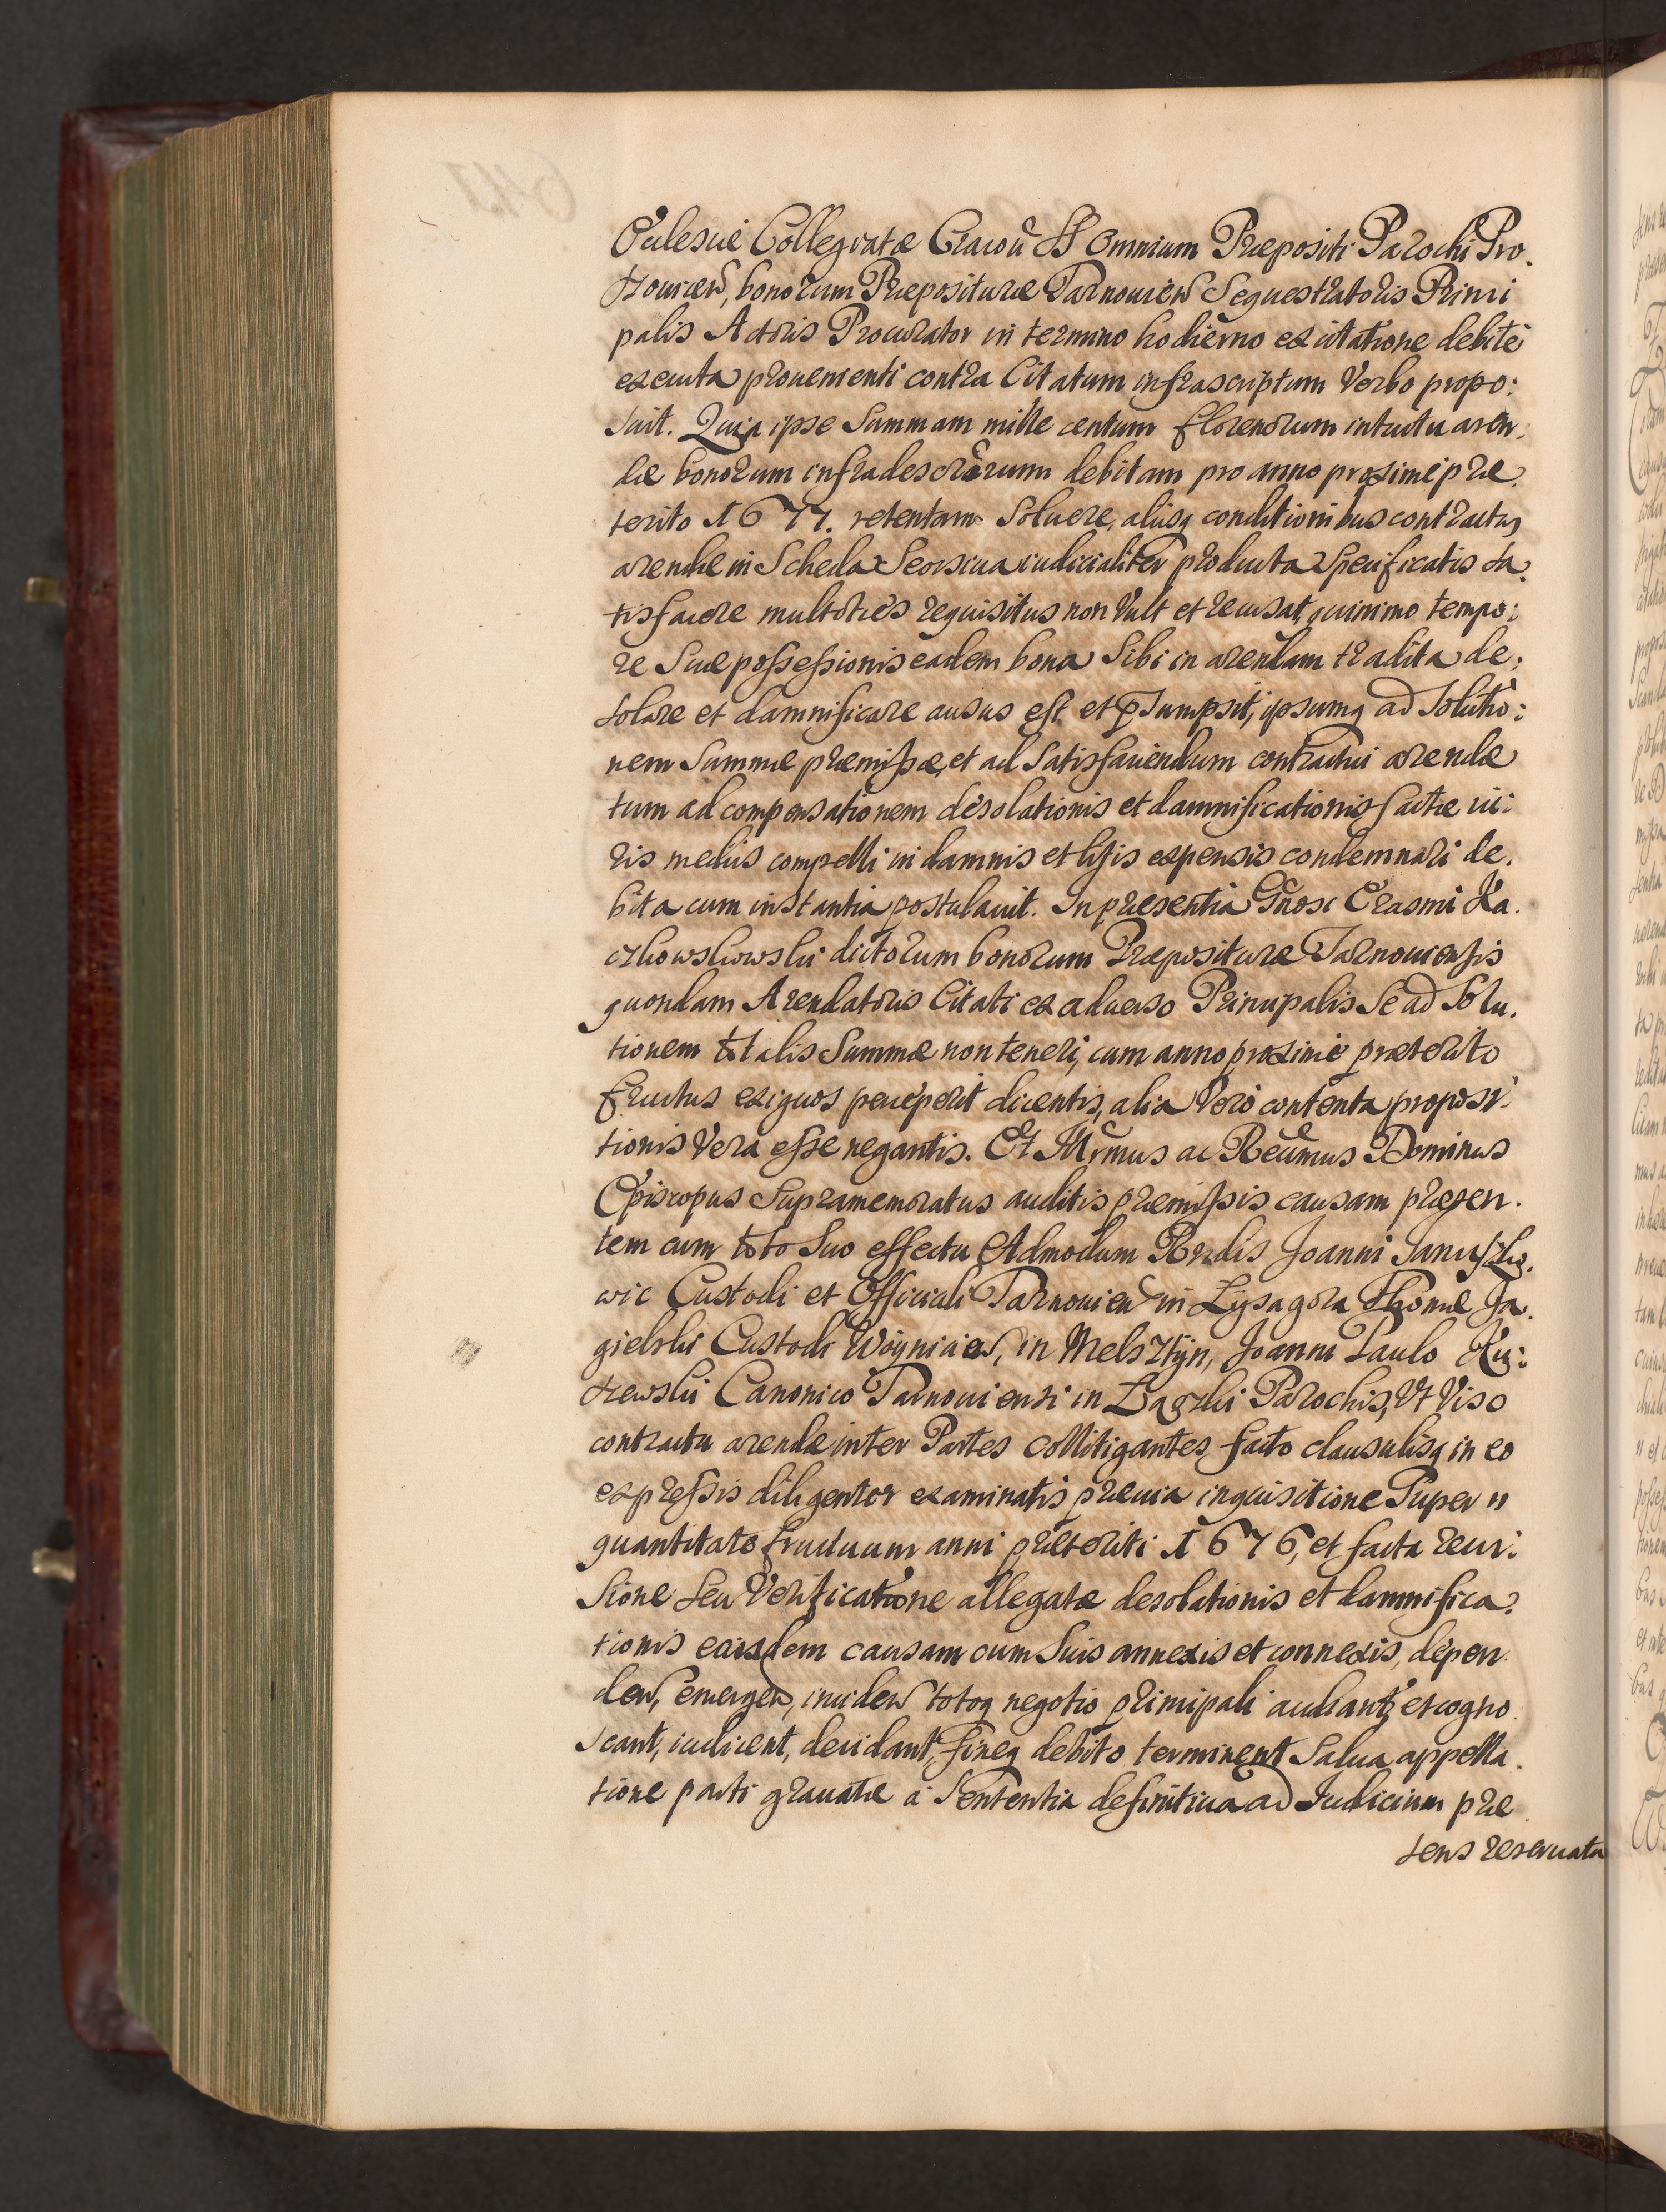 Ecclesiae Collegiatae Cracou SS Omnium Praepositi Parochi Pro.
szouicen, bonorum Praepositurae Tarnouien Sequestratoris Princi
palis Actoris Procurator in termino hodierno ex citatione debite
executa prouenienti contra Citatum infrascriptum Verbo propo:
suit. Quia ipse Summam mille centum florenorum intuitu aren:
dae bonorum infradescrorum debitam pro anno proxime prae
terito 1677. retentam Soluere, aliisq conditionibus contractus
arendae in Scheda Seorsiua iudicialiter producta specificatis sa
tisfacere multoties requisitus non Vult et recusat, quinimo tempo:
re Suae possessionis eadem bona Sibi in arendam tradita de:
solare et damnificare ausus est et psumpsit, ipsumq ad Solutio:
nem Summae praemissae, et ad Satisfaciendum contractui arendae
tum ad compensationem desolationis et damnificationis factae iu:
ris mediis compelli in damnis et litis expensis condemnari de.
bita cum instantia postulauit. In praesentia Gnosi Erasmi Ka.
czkowskowski dictorum bonorum Praepositurae Tarnouiensis
quondam Arendatoris Citati ex aduerso Principalis Se ad Solu.
tionem totalis Summae non teneri, cum anno proxime praeterito
fructus exiguos perceperit dicentis, alia Vero contenta proposi:
tionis Vera esse negantis. Et Illrmus ac Reumus Dominus
Episcopus Supramemoratus auditis praemissis causam praesen.
tem cum toto Suo effectu Admodum Rndis Joanni Januszko.
wic Custodi et Officiali Tarnouien in Lysagora Thomae Ja.
gielski Custodi Woyniciens, in Melsztyn, Joanni Paulo
Canonico Tarnouiensi in Parochis, Vt Viso
contractu arendae inter Partes collitigantes facto clausulisq in eo
expressis diligenter examinatis praeuia inquisitione Super
quantitate fructuum anni praeteriti 1676, et facta reui:
sione seu Verificatione allegatae desolationis et damnifica:
tionis eiusdem causam cum Suis annexis et connexis, depen
den, emergen, inciden totoq negotio principali audiant, et cogno
scant, iudicent, decidant, fineq debito terminent Salua appella.
tione parti grauatae a Sententia definitiua ad Iudicium prae
sens reseruata